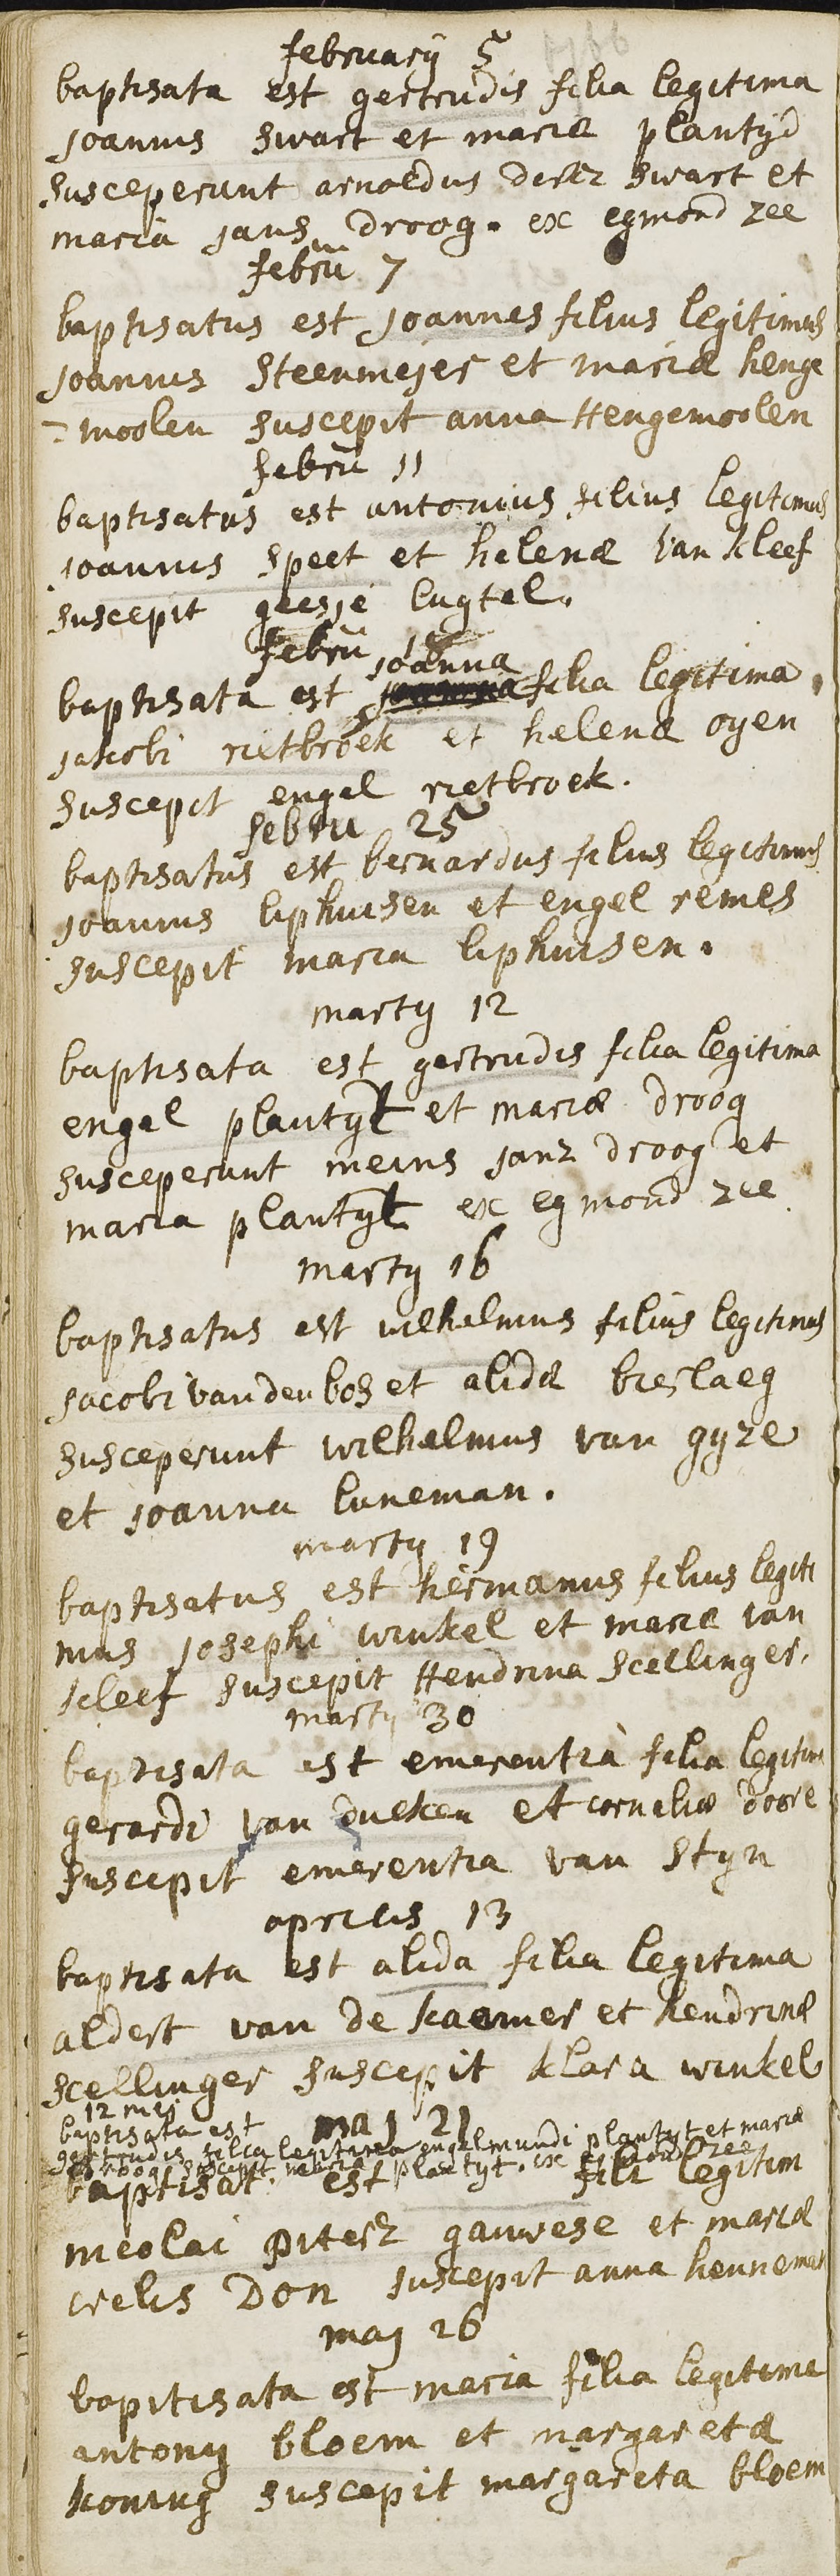 february 5
baptisata est gertrudis filia legitima
joannis swart et mariæ plantyd
susceperunt arnoldus dirkz swart et
maria jans droog. ex egmond zee
febru 7
baptisatus est joannes filius legitimus
joannis steenmejer et mariæ henge
=moolen suscepit anna Hengemoolen
febru 11
baptisatus est antonius filius legitimus
joannis speet et helenæ van kleef
suscepit geesje lugtel.
febru
baptisata est joanna filia legitima
jakobi rietbroek et helenæ oyen
suscepit engel rietbroek.
febru 25
baptisatus est bernardus filius legitimus
joannis liphuisen et engel remes
suscepit maria liphuisen.
marty 12
baptisata est gertrudis filia legitima
engel plantyt et mariæ droog
susceperunt meins janz droog et
maria plantyt ex egmond zee
marty 16
baptisatus est wilhelmus filius legitimus
jacobi van den bos et alidæ bieslaeg
susceperunt wilhelmus van gyze
et joanna luneman.
marty 19
baptisatus est hermanus filius legiti
mus josephi winkel et mariæ van
kleef suscepit Hendrina Scellinger.
marty 30
baptisata est emerentia filia legitima
gerardi van dueken et corneliæ doore
suscepit emerentia van Styn
aprilis 13
baptisata est alida filia legitima
aldert van de kaemer et hendrinæ
scellinger suscepit klara winkel
12 mei
baptisata est
gertrudis filia legitima engelmundi plantyt et mariæ
droog suscepit maria plantyt. ex egmond zee
maj 21
baptisat. est fili legitim
nicolai piterz gauwese et mariæ
crelis Don suscepit anna henneman
maj 26
bapitisata est maria filia legitima
antony bloem et margaretæ
koning suscepit margareta bloem